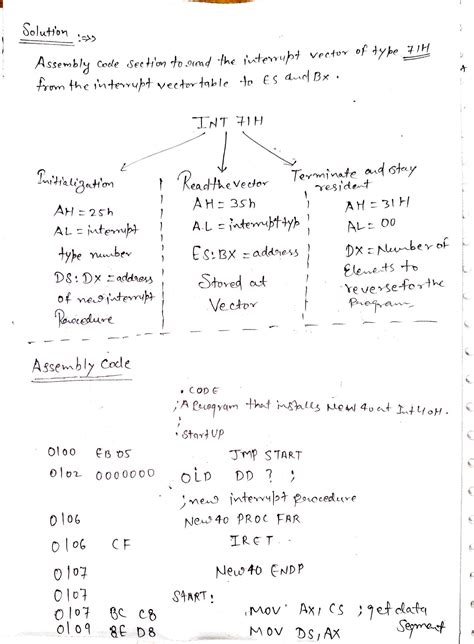 Solution :⇒>
Assembly code section to read the interrupt vector of type 71H
from the interrupt vector table to ES and BX.
INT 71H
Initialization
AH = 25h
AL = interrupt
type number
DS: DX = address
of new interrupt
Procedure
Read the vector
AH = 35h
AL = interrupt typ
ES:BX = address
Stored at
Vector
Terminate and stay
resident
AH = 31H
AL = 00
DX = Number of
Elements to
reverse for the
Program
Assembly Code
• CODE
; A Program that installs New 40 at Int 40H.
• Start UP
0100 EB 05 JMP START
0102 0000000 OLD DD ? ;
; new interrupt procedure
0106 New 40 PROC FAR
0106 CF IRET.
0107 New 40 ENDP
0107 START:
0107 8C C8 MOV AX, CS ; get data
Segment
0109 8E D8 MOV DS, AX